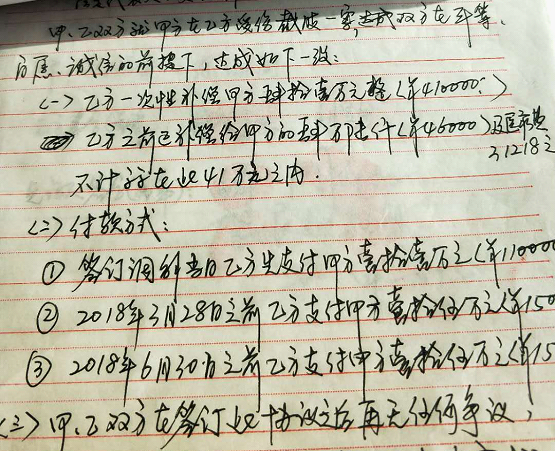 甲、乙双方就甲方在乙方受伤截肢一案,达成双方在平等、
自愿、诚信的前提下,达成如下一致:
(一)乙方一次性补偿甲方肆拾壹万元整(¥410000.)
乙方之前已补偿给甲方的肆万陆仟(¥46000)及医药费
31218元
不计算在此41万元之内.
(二)付款方式:
① 签订调解当日乙方先支付甲方壹拾壹万元(¥110000
② 2018年3月28日之前乙方支付甲方壹拾伍万元(¥150
③ 2018年6月30日之前乙方支付甲方壹拾伍万元(¥15
(三)甲、乙双方在签订此协议之后再无任何争议,